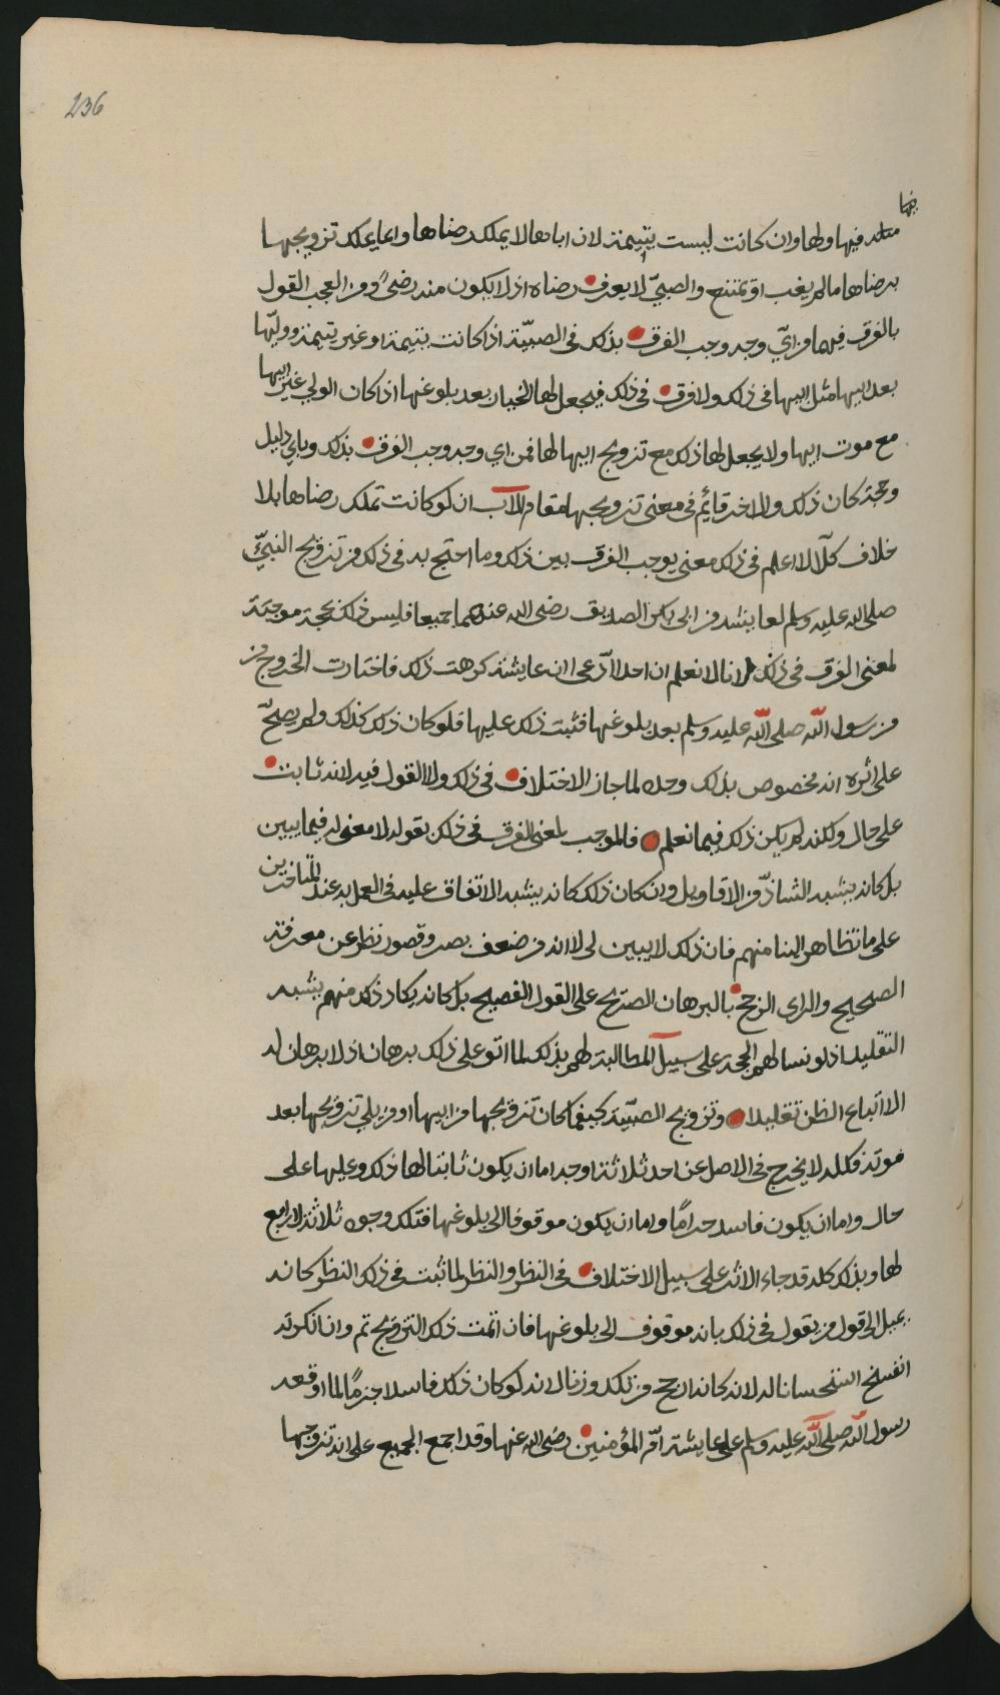 236
فيها
مثله فيها ولها وان كانت ليست بيتيمة لان اباها لا يملك رضاها وانما يملك تزويجها
برضاها ما لم يغب او يمتنع والصبيّ لا يعرف رضاه اذ لا يكون منه رضىً ومن العجب القول
بالفرق فيهما من ايّ وجه وجب الفرق بذلك في الصبيّة اذا كانت يتيمة او غير يتيمة ووليّها
بعد ابيها مثل ابيها في ذلك ولا فرق في ذلك فيجعل لها الخيار بعد بلوغها اذا كان الولي غير ابيها
مع موت ابيها ولا يجعل لها ذلك مع تزويج ابيها لها فمن اي وجه وجب الفرق بذلك وباي دليل
وحجة كان ذلك والاخر قائم في معنى تزويجها مقام الاب ان لو كانت تملك رضاها بلا
خلاف كلّا لا اعلم في ذلك معنى يوجب الفرق بين ذلك وما احتج به في ذلك من تزويج النبيّ
صلى الله عليه وسلم لعايشة من ابي بكر الصديق رضى الله عنهما جميعا فليس ذلك بحجة موجبة
لمعنى الفرق في ذلك لانا لا نعلم ان احدا ادّعى ان عايشة كرهت ذلك فاختارت الخروج من
من رسول الله صلى الله عليه وسلم بعد بلوغها فثبت ذلك عليها فلو كان ذلك كذلك ولم يصحّ
على اثره انه مخصوص بذلك وحده لما جاز الاختلاف في ذلك ولا القول فيه لانه ثابت
على حال ولكنه لم يكن ذلك فيما نعلم فالموجب لمعنى الفرق في ذلك بقوله لا معنى له فيما يبين
بل كانه يشبه الشاذّ من الاقاويل وان كان ذلك كانه يشبه الاتفاق عليه في العمل به عند المتاخرين
على ما تظاهر الينا منهم فان ذلك لا يبين لي لا انه من ضعف بصر وقصور نظر عن معرفة
الصحيح والراي الرجح بالبرهان الصريح على القول الفصيح بل كانه يكاد ذلك منهم يشبه
التقليد اذ لو نسالهم الحجة على سبيل المطالبة لهم بذلك لما اتو على ذلك ببرهان اذ لا برهان له
الا اتباع الظن تقليدا وتزويج الصبيّة كيفما كان تزويجها من ابيها او من يلي تزويجها بعد
موته فكله لا يخرج في الاصل عن احد ثلاثة اوجه اما ان يكون ثابتا لها ذلك وعليها على
حال واما ان يكون فاسد حرامًا واما ان يكون موقوفا الى بلوغها فتلك وجوه ثلاثة لا رابع
لها وبذلك كله قد جاء الاثر على سبيل الاختلاف في النظر والنظر لما ثبت في ذلك النظر كانه
يميل الى قول من يقول في ذلك بانه موقوف الى بلوغها فان اتمت ذلك التزويج تم وان انكرته
انفسخ استحسانا له لانه كانه ارجح من تلك وزنا لانه لو كان ذلك فاسدا جزمًا لما اوقعه
رسول الله صلى الله عليه وسلم على عايشة امّ المؤمنين رضى الله عنها وقد اجمع الجميع على انه تزوجها